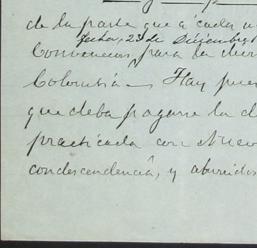 de la parte que á cada u
fecha 23 de Diciembre
Convencion, para la
Colombia — Hay
que deba pagarse la d
practicada con Nuev
condescendencia, y